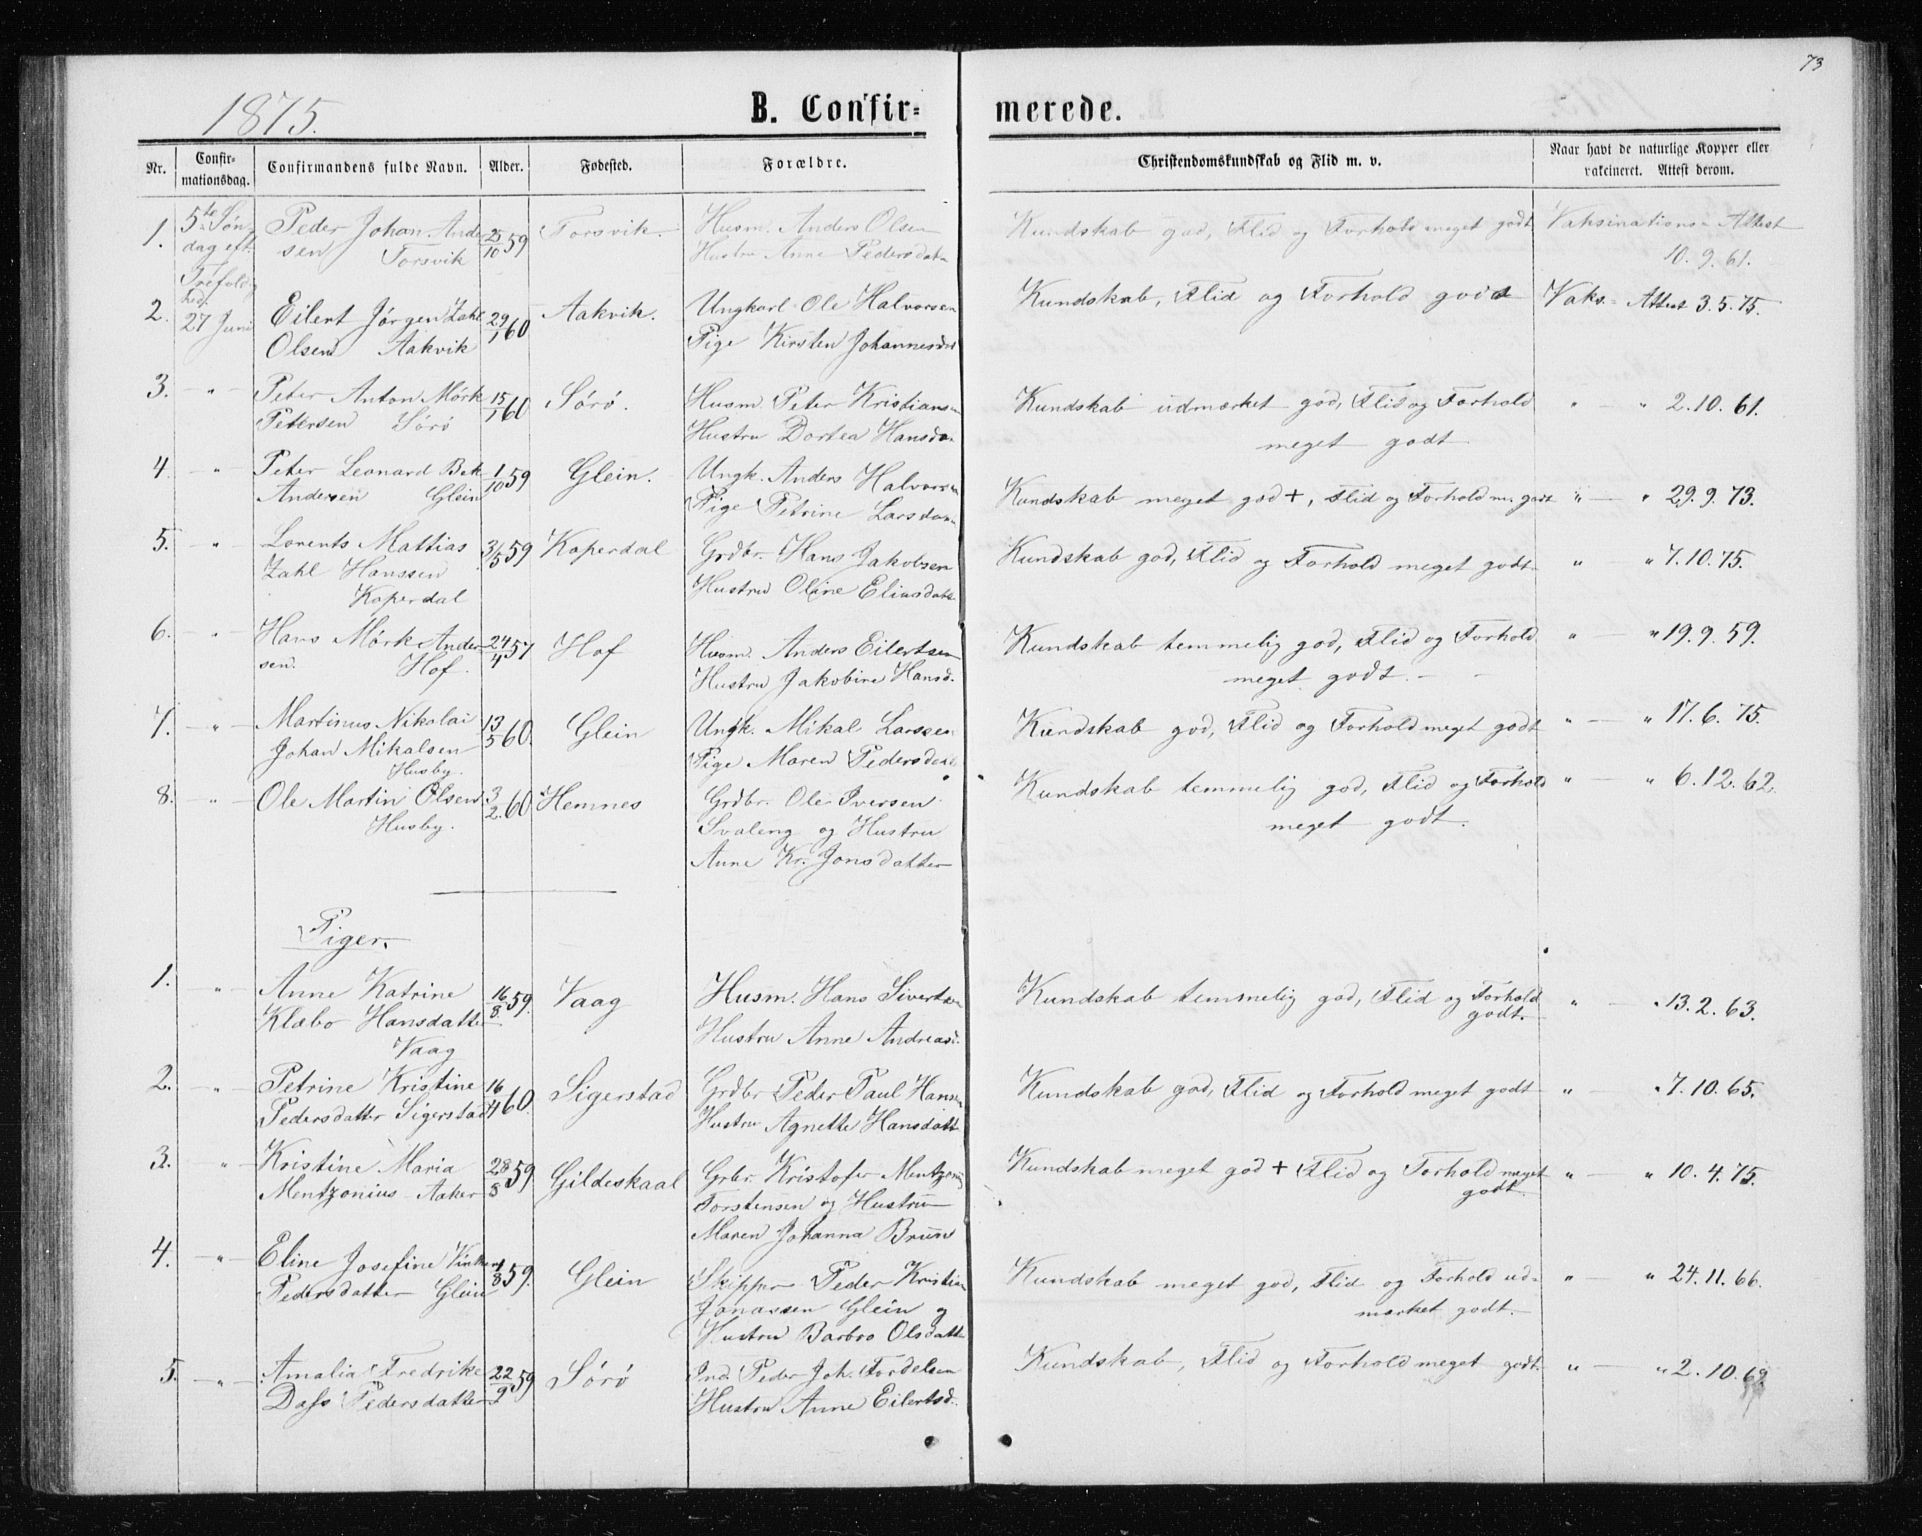 73
1875.
B. Confir-
merede.
Nr.
Confir-
mationsdag.
Confirmandens fulde Navn.
Alder.
Fødested.
Forældre.
Christendomskundskab og Flid m. v.
Naar havt de naturlige Kopper eller
vakcineret. Attest derom.
1. 5te Søn- Peder Johan Ander- 25/10 59 Torsvik. Husm. Anders Olsen Kundskab god, Flid og Forhold meget godt Vaksinations-Attest
dag eft. sen Torsvik Hustru Anne Pedersdatr 10. 9. 61.
Trefoldig
hed.
2. 27 Juni Eilert Jørgen Zahl 29/1 60 Aakvik. Ungkarl Ole Halvorsen Kundskab, Flid og Forhold godt Vaks- Attest 3. 5. 75.
Olsen Aakvik Pige Kirsten Johannesdr
3. - " - Peter Anton Mørk 15/1 60 Sørø. Husm. Peter Kristiansen Kundskab udmærket god, Flid og Forhold " - " 2. 10. 61.
Petersen Sørø Hustru Dortea Hansda meget godt
4. " Peter Leonard Bek 1/10 59 Glein. Ungk. Anders Halvorsen Kundskab meget god +, Flid og Forhold m. godt " - " 29. 9. 73.
Andersen Glein Pige Petrine Larsdatr
5. " Lorents Mattias 3/5 59 Koperdal Grdbr. Hans Jakobsen Kundskab god, Flid og Forhold meget godt " " 7. 10. 75.
Zahl Hanssen Hustru Oline Eliasdatr
Koperdal
6. - " - Hans Mørk Ander- 24/4 57 Hof Husm. Anders Eilertsen Kundskab temmelig god, Flid og Forhold " - " 19. 9. 59.
sen. Hof. Hustru Jakobine Hansd. meget godt. -
7. - " - Martinus Nikolai 13/5 60. Glein Ungk. Mikal Larssen Kundskab god, Flid og Forhold meget godt " - " 17. 6. 75.
Johan Mikalsen Pige Maren Pedersdatr
Husby.
8. - " - Ole Martin Olsen 3/2 60 Hemnes Grdbr. Ole Iversen Kundskab temmelig god, Flid og Forhold " - " 6. 12. 62.
Husby. Svaleng og Hustru meget godt.
Anne Kr. Jonsdatter
Piger.
1. - " - Anne Katrine 16/8 59. Vaag Husm. Hans Sivertsen Kundskab temmelig god, Flid og Forhold " - " 13. 2. 63.
Klæbo Hansdatter Hustru Anne Andreasd. godt.
Vaag
2. - " - Petrine Kristine 16/4 60. Sigerstad Grdbr Peder Paul Hansen Kundskab god, Flid og Forhold meget godt " - " 7. 10. 65.
Pedersdatter Sigerstad Hustru Agnette Hansdatt
3. - " - Kristine Maria 28/8 59 Gildeskaal Grbr. Kristofer Mentzonius Kundskab meget god + Flid og Forhold meget " - " 10. 4. 75.
Mentzonius Aaker Torstensen og Hustru godt.
Maren Johanna Bruun
4. - " - Eline Josefine 1/8 59. Glein Skippr Peder Kristian Kundskab meget god, Flid og Forhold ud- " - " 24. 11. 66.
Pedersdatter Glein Jonassen Glein og mærket godt.
Hustru Barbro Olsdatter
5. - " - Amalia Fredrike 22/9 59 Sørø Ind. Peder Joh. Tordelsen Kundskab, Flid og Forhold meget godt. " - " 2. 10. 62
Dass Pedersdatter Hustru Anne Eilertsd.